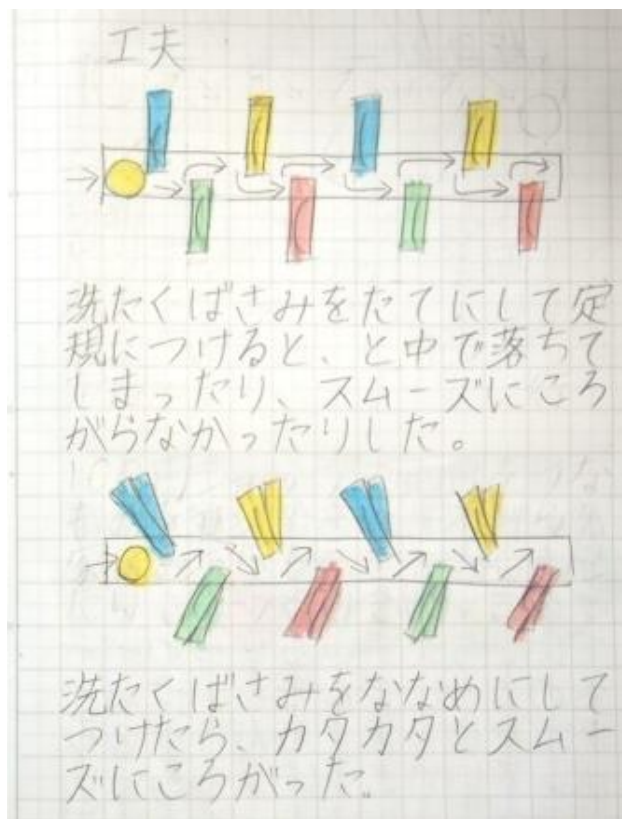 工夫
洗たくばさみをたてにして定
規につけると、と中で落ちて
しまったり、スムーズにころ
がらなかったりした。
洗たくばさみをななめにして
つけたら、カタカタとスムー
ズにころがった。